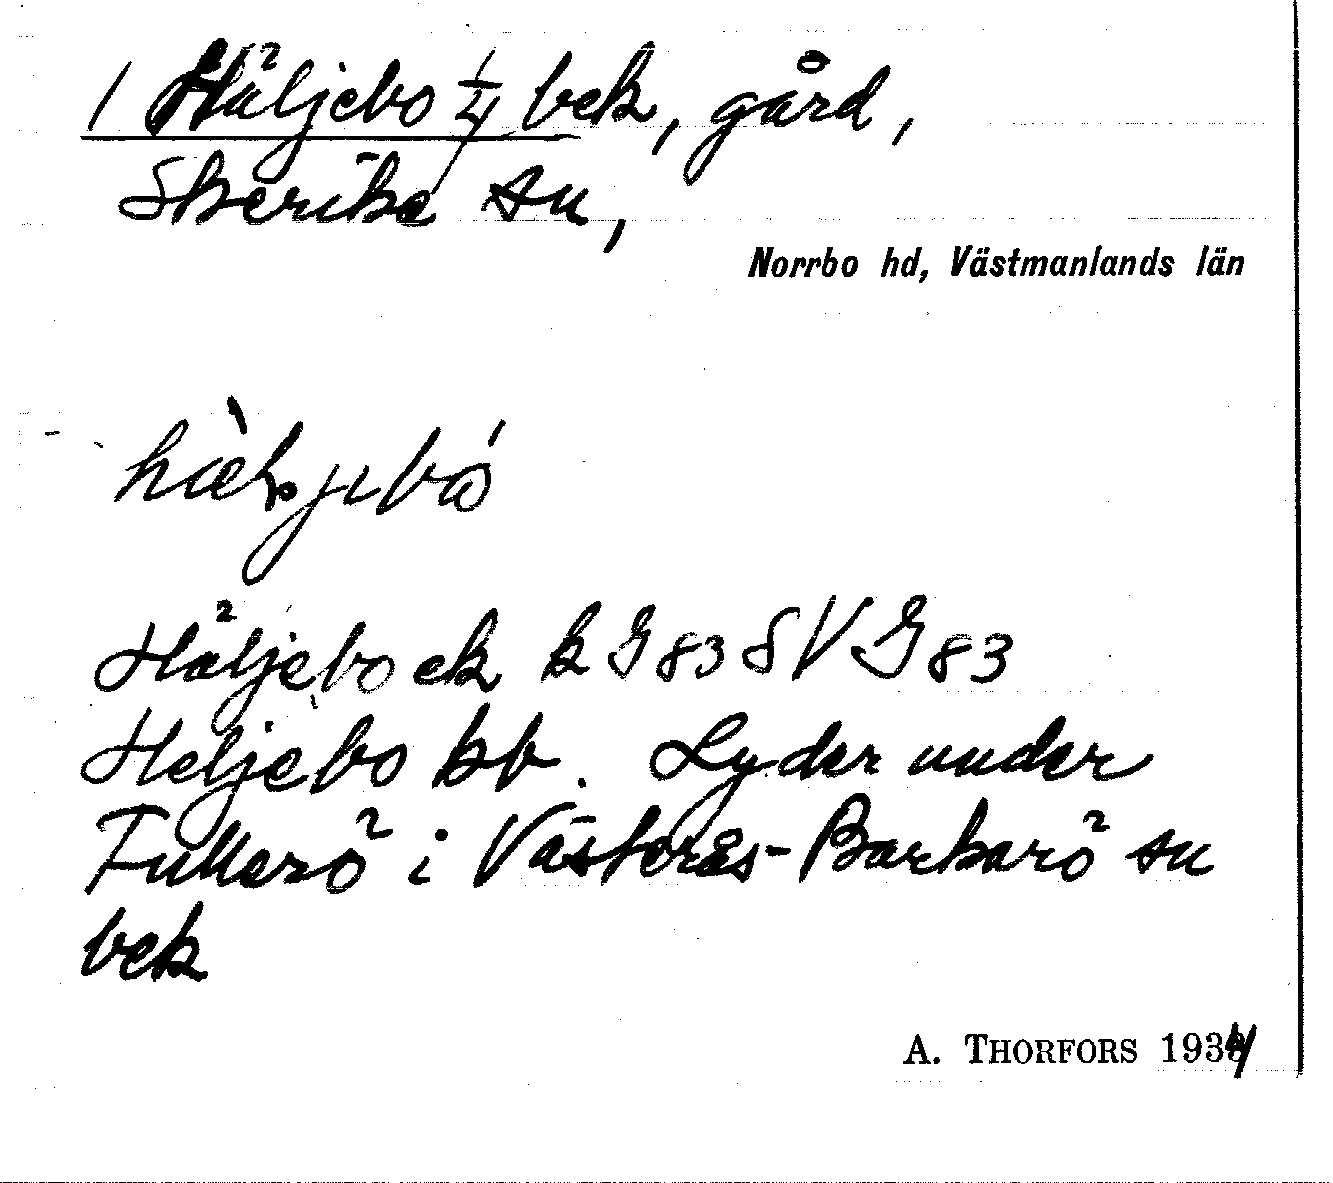 1 Häljebo 1/4 bek, gård,
Skerike sn,
Norrbo hd, Västmanlands län
Häljebo ek k G83 S V G83
Heljebo kb. Lyder under
Fullerö i Västerås-Barkarö sn
bek
A. THORFORS 1934